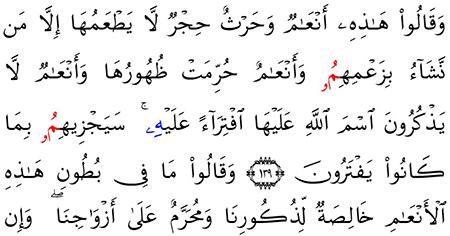 وَقَالُوا۟ هَـٰذِهِۦٓ أَنْعَـٰمٌ وَحَرْثٌ حِجْرٌ لَّا يَطْعَمُهَا إِلَّا مَن
نَّشَآءُ بِزَعْمِهِمُۥ وَأَنْعَـٰمٌ حُرِّمَتْ ظُهُورُهَا وَأَنْعَـٰمٌ لَّا
يَذْكُرُونَ ٱسْمَ ٱللَّهِ عَلَيْهَا ٱفْتِرَآءً عَلَيْهِۦ ۚ سَيَجْزِيهِمُۥ بِمَا
كَانُوا۟ يَفْتَرُونَ ۝١٣٩ وَقَالُوا۟ مَا فِى بُطُونِ هَـٰذِهِ
ٱلْأَنْعَـٰمِ خَالِصَةٌ لِّذُكُورِنَا وَمُحَرَّمٌ عَلَىٰٓ أَزْوَٰجِنَا ۖ وَإِن